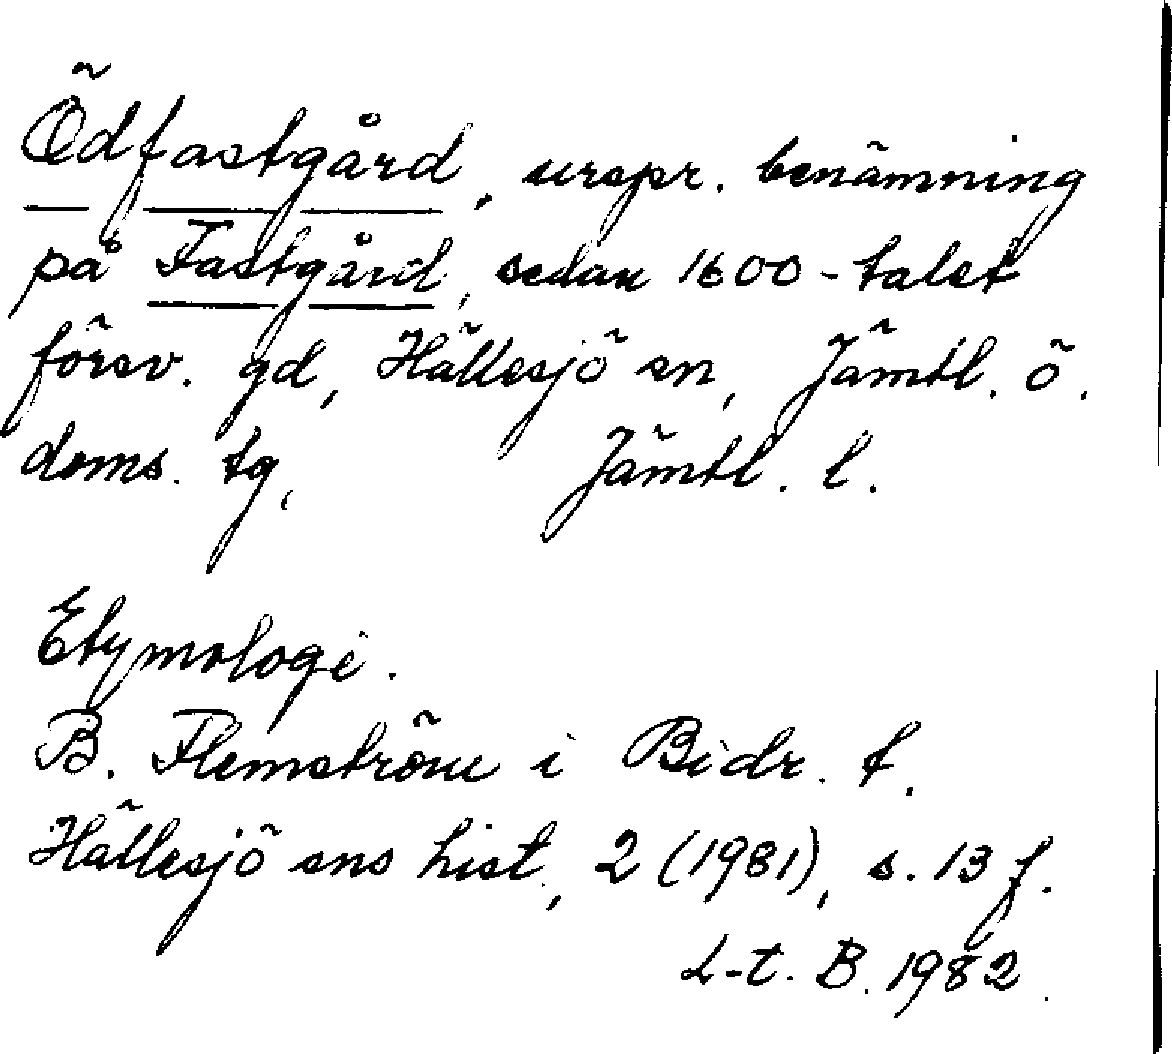 Ödfastgård, urspr. benämning
på Fastgård, sedan 1600-talet
försv. gd, Hällesjö sn, Jämtl. ö.
doms. tg, Jämtl. l.
Etymologi.
B. Flemström i Bidr. t.
Hällesjö sns hist., 2 (1981), s. 13 f.
L-t. B. 1982.